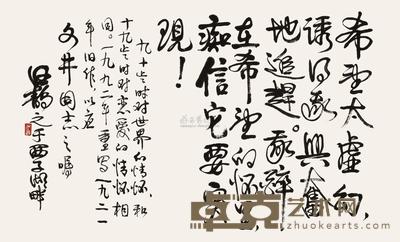 希望太虚幻,
诱得我兴奋
地追赶。我醉
在希望的怀
痴信它要实
现!
九十岁时对世界的情怀,和
十九岁时对恋爱的情怀相
同。一九九二年重写一九二一
年旧作,以应
文井同志之嘱
之于西子湖畔